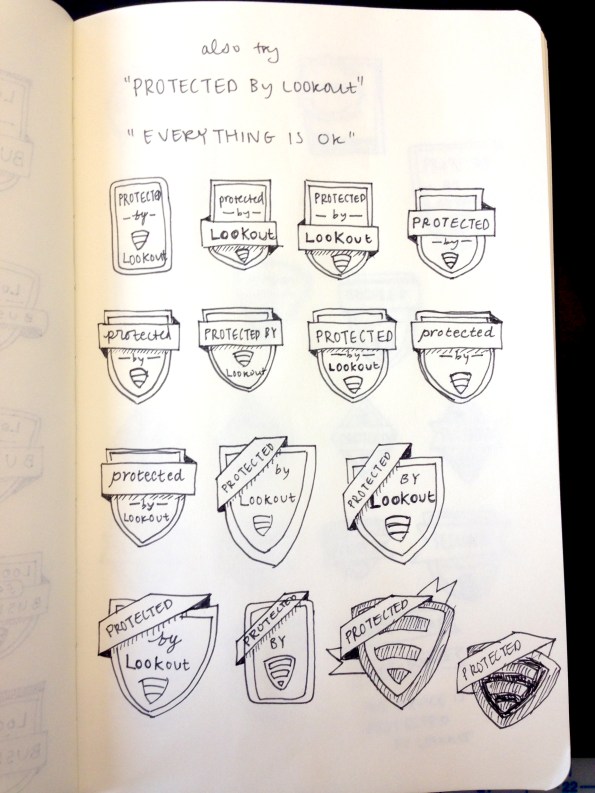 also try
"PROTECTED By LOOKout"
"EVERYTHING IS OK"
PROTECTED
by
LOOKout
protected
by
LOOKout
PROTECTED
by
LOOKout
PROTECTED
by
protected
by
PROTECTED BY
Lookout
PROTECTED
by
LOOKOUT
protected
by
protected
by
LOOKOUT
PROTECTED
by
LOOKout
PROTECTED
BY
LOOKout
PROTECTED
by
LOOKout
PROTECTED
BY
PROTECTED
PROTECTED
22